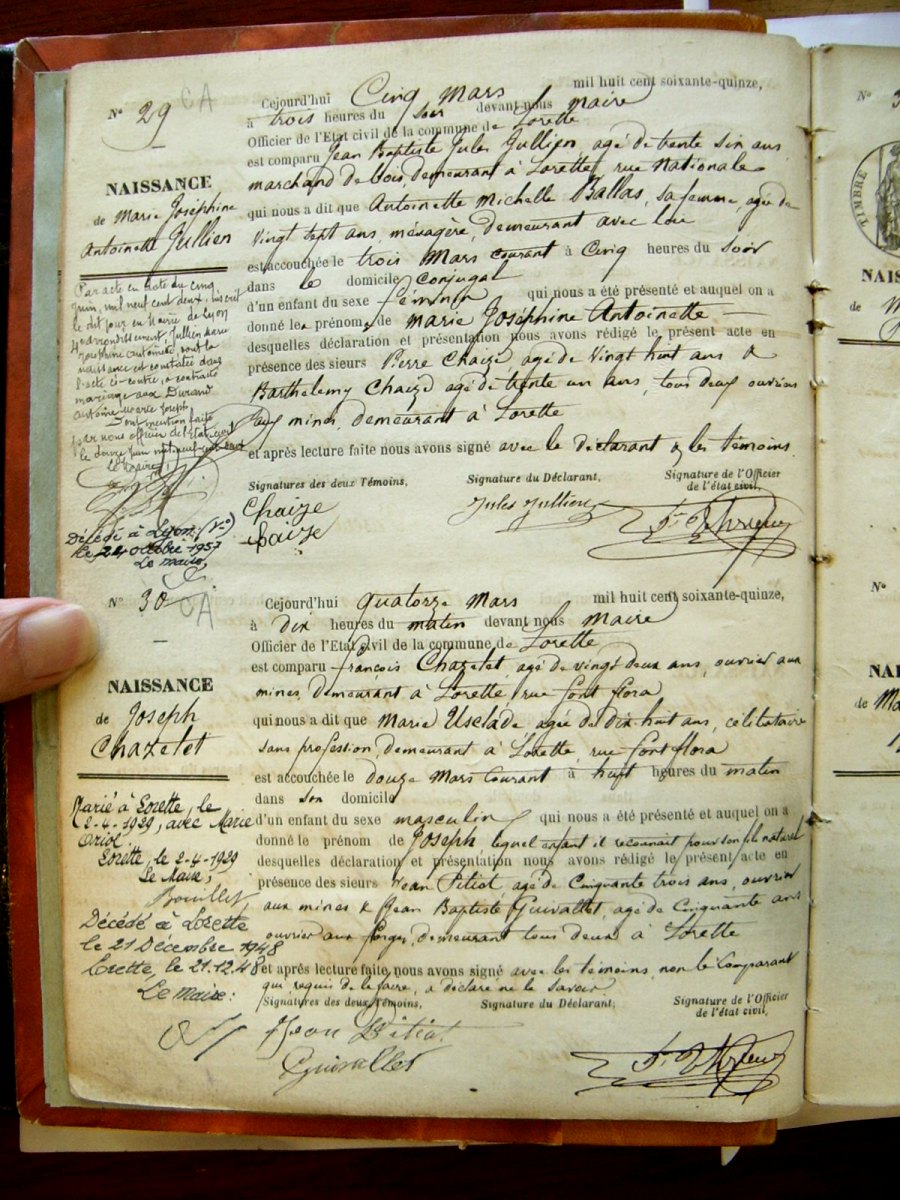 N° 29
CA
NAISSANCE
de Marie Joséphine
Antoinette Jullien
Cejourd'hui Cinq Mars mil huit cent soixante-quinze,
à trois heures du soir devant nous Maire
Officier de l'Etat civil de la commune de Lorette
est comparu Jean Baptiste Jules Jullien, agé de trente six ans
marchand de bois, demeurant à Lorette, rue Nationale
qui nous a dit que Antoinette Michelle Ballas, sa femme, agée de
vingt sept ans, ménagère, demeurant avec lui
est accouchée le trois Mars courant à Cinq heures du Soir
dans le domicile conjugal
d'un enfant du sexe féminin qui nous a été présenté et auquel on a
donné les prénoms de Marie Joséphine Antoinette
desquelles déclaration et présentation nous avons rédigé le présent acte en
présence des sieurs Pierre Chaize agé de vingt huit ans &
Barthélemy Chaize agé de trente un ans, tous deux ouvriers
aux mines, demeurant à Lorette
et après lecture faite nous avons signé avec le déclarant & les témoins.
Signatures des deux Témoins,
Signature du Déclarant,
Signature de l'Officier
de l'état civil,
Chaize
Chaize
Jules Jullien
Par acte en date du cinq
juin, mil neuf cent deux, inscrit
le dit jour en Mairie de Lyon
4e arrondissement, Jullien Marie
Joséphine Antoinette, dont la
naissance est constatée dans
l'acte ci-contre, a contracté
mariage avec Durand
Antoine Marie Joseph
Dont mention faite
par nous officier de l'Etat civil
le douze juin mil neuf cent deux
Le Maire,
Décédé à Lyon (V°)
le 24 octobre 1957
Le maire,
N° 30
CA
NAISSANCE
de Joseph
Chazelet
Cejourd'hui quatorze Mars mil huit cent soixante-quinze,
à dix heures du matin devant nous Maire
Officier de l'Etat civil de la commune de Lorette
est comparu François Chazelet, agé de vingt deux ans, ouvrier aux
mines, demeurant à Lorette, rue font flora
qui nous a dit que Marie Usclade, agée de dix huit ans, célibataire
sans profession demeurant à Lorette, rue font flora
est accouchée le douze Mars courant à huit heures du matin
dans son domicile
d'un enfant du sexe masculin qui nous a été présenté et auquel on a
donné le prénom de Joseph, lequel enfant il reconnait pour son fils naturel
desquelles déclaration et présentation nous avons rédigé le présent acte en
présence des sieurs Jean Pitiot, agé de Cinquante trois ans, ouvrier
aux mines & Jean Baptiste Guivallet, agé de Cinquante ans
ouvrier aux forges, demeurant tous deux à Lorette
et après lecture faite, nous avons signé avec les témoins, non le Comparant
qui, requis de le faire, a déclaré ne le savoir
Signatures des deux Témoins,
Signature du Déclarant,
Signature de l'Officier
de l'état civil,
Jean Pitiot
Guivallet
Marié à Lorette, le
2-4-1929, avec Marie
Oriol.
Lorette, le 2-4-1929
Le Maire,
Bouillet
Décédé à Lorette
le 21 Décembre 1948
Lorette, le 21.12.48
Le Maire:
N°
TIMBRE
de
N°
de Ma